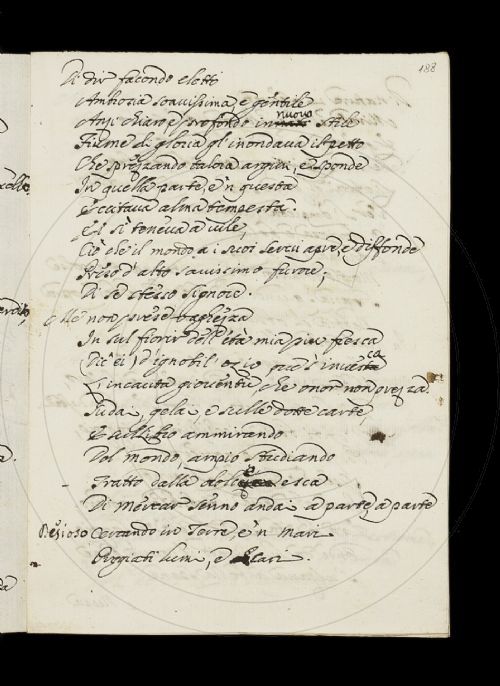 188
Di dir facondo e lotti
Ambrosia soavissima, e gentile
Anzi chiaro, e profondo in nuovo stile
Fiume di gloria gl'inondava il petto
Che sprezzando talora argini, e sponde
In quella parte, e'n questa
Eccitava alma tempesta.
Ei si teneva a vile,
Ciò che il mondo a i suoi servi apre, e diffonde
Preso d'alto savissimo furore;
Di se stesso signore.
Me non prese vaghezza
In sul fiorir dell'età mia più fresca
(Dic'ei) d'ignobil ozio
L'incauta gioventù che onor non prezza.
Suda, gela, e sulle dotte carte,
E sul libro ammirando
Del mondo, ampio studiando
Tratto dalla dolce esca
Di mercar senno andai a parte, a parte
Desioso Cercando ir Terre, e'n Mari
Pregiati lumi, e chiari.